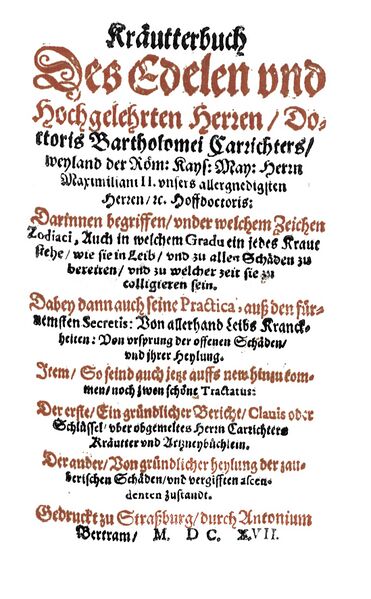 Kräutterbuch
Des Edelen vnd
Hochgelehrten Herren / Do-
ctoris Bartholomei Carrichters /
weyland der Röm: Kays: May: Herrn
Maximiliani II. vnsers allergnedigsten
Herren / ꝛc. Hoffdoctoris:
Darinnen begriffen / vnder welchem Zeichen
Zodiaci, Auch in welchem Gradu ein jedes Kraut
stehe / wie sie in Leib / vnd zu allen Schäden zu
bereiten / vnd zu welcher zeit sie zu
colligieren sein.
Dabey dann auch seine Practica, auß den für-
nemsten Secretis: Von allerhand Leibs Kranck-
heiten: Von vrsprung der offenen Schäden /
vnd ihrer Heylung.
Item / So seind auch jetzt auffs new hinzu kom-
men / noch zwen schöne Tractatus:
Der erste / Ein gründlicher Bericht / Clauis oder
Schlüssel / vber obgemeltes Herrn Carrichters
Kräutter vnd Artzneybüchlein.
Der ander / Von gründlicher heylung der zau-
berischen Schäden / vnd vergifften ascen-
denten zustandt.
Gedruckt zu Straßburg / durch Antonium
Bertram / M. DC XVII.